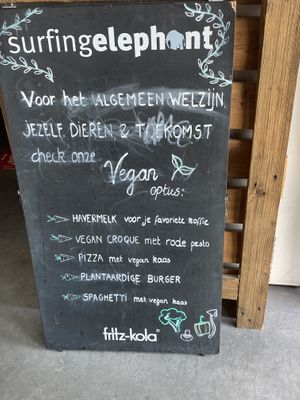 surfingelephant
Voor het ALGEMEEN WELZIJN,
JEZELF, DIEREN & TOEKOMST
check onze
Vegan
opties:
HAVERMELK voor je favoriete koffie
VEGAN CROQUE met rode pesto
PIZZA met vegan kaas
PLANTAARDIGE BURGER
SPAGHETTI met vegan kaas
fritz-kola